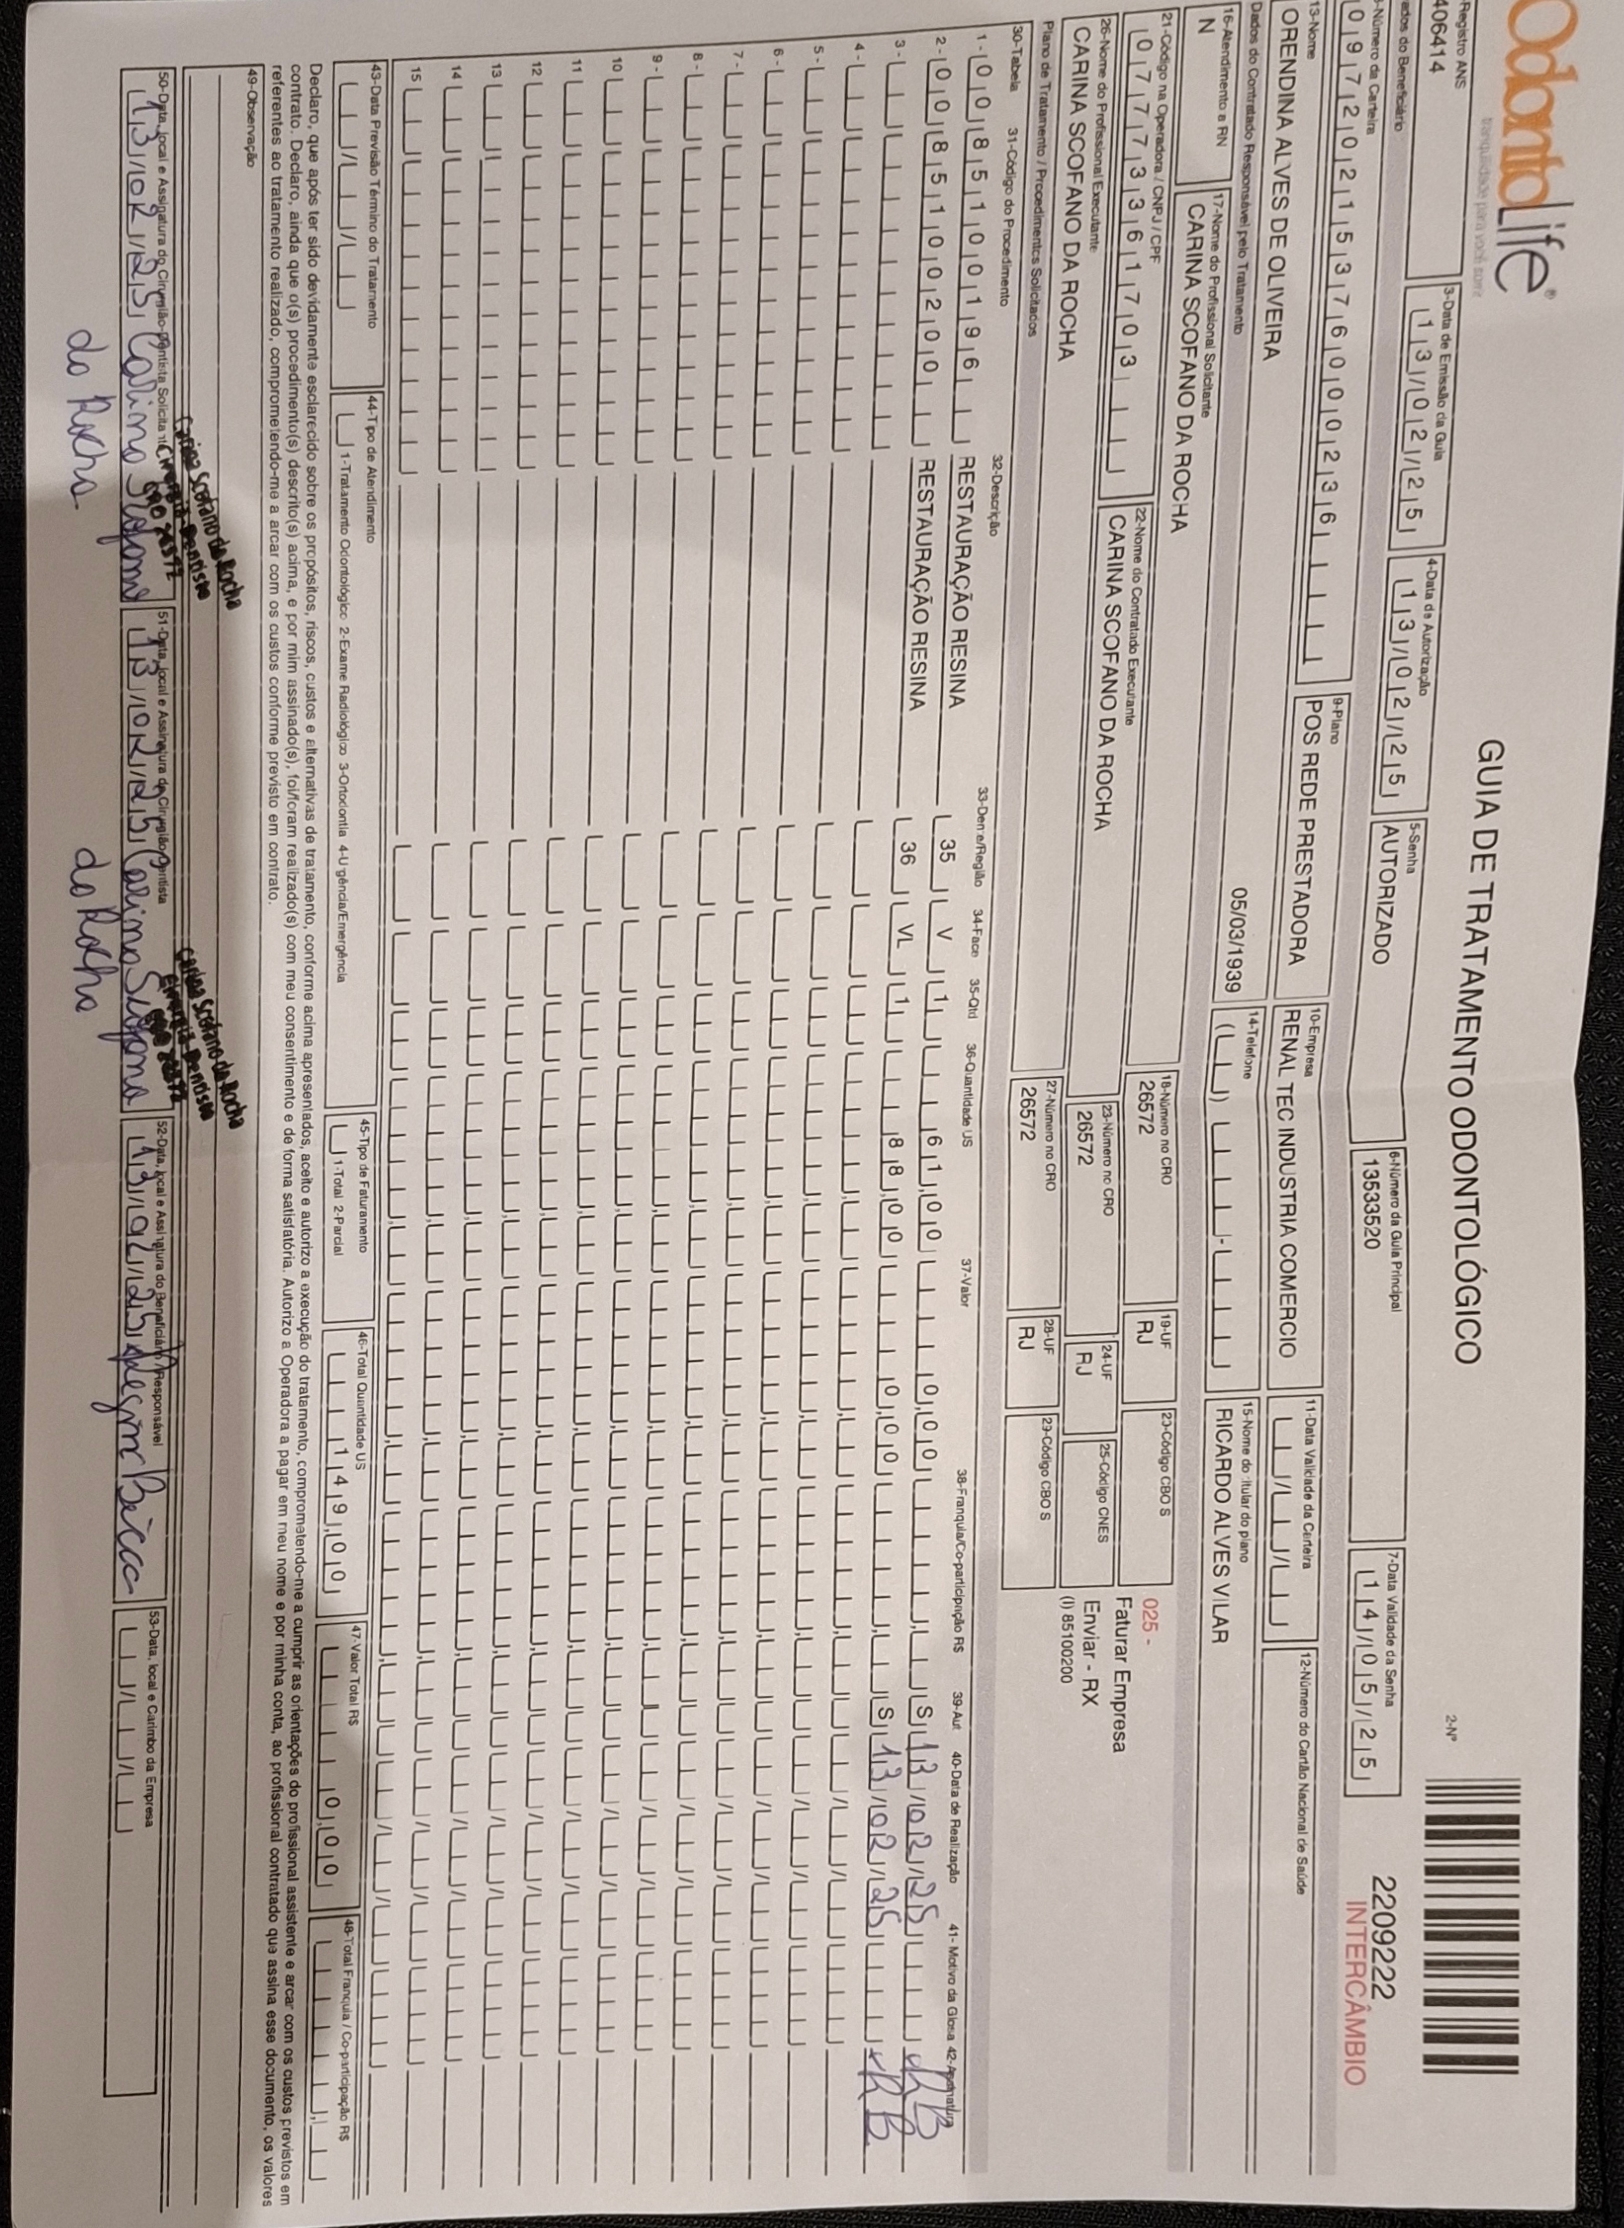 OdontoLife®
tranquilidade para você sorrir
GUIA DE TRATAMENTO ODONTOLÓGICO
2-Nº
2209222
INTERCÂMBIO
Registro ANS
406414
3-Data de Emissão da Guia
13/02/25
4-Data de Autorização
13/02/25
5-Senha
AUTORIZADO
6-Número da Guia Principal
13533520
7-Data Validade da Senha
14/05/25
ados do Beneficiário
-Número da Carteira
09720215376000236
9-Plano
POS REDE PRESTADORA
10-Empresa
RENAL TEC INDUSTRIA COMERCIO
11-Data Validade da Carteira
12-Número do Cartão Nacional de Saúde
13-Nome
ORENDINA ALVES DE OLIVEIRA
05/03/1939
14-Telefone
15-Nome do titular do plano
RICARDO ALVES VILAR
Dados do Contratado Responsável pelo Tratamento
16-Atendimento a RN
N
17-Nome do Profissional Solicitante
CARINA SCOFANO DA ROCHA
18-Número no CRO
26572
19-UF
RJ
20-Código CBO S
025 -
Faturar Empresa
Enviar - RX
(I) 85100200
21-Código na Operadora / CNPJ / CPF
07773361703
22-Nome do Contratado Executante
CARINA SCOFANO DA ROCHA
23-Número no CRO
26572
24-UF
RJ
25-Código CNES
26-Nome do Profissional Executante
CARINA SCOFANO DA ROCHA
27-Número no CRO
26572
28-UF
RJ
29-Código CBO S
Plano de Tratamento / Procedimentos Solicitados
30-Tabela 31-Código do Procedimento 32-Descrição 33-Dente/Região 34-Face 35-Qtd 36-Quantidade US 37-Valor 38-Franquia/Co-participação R$ 39-Aut 40-Data de Realização 41- Motivo da Glosa 42-Assinatura
1 - 00 85100196 RESTAURAÇÃO RESINA 35 V 1 61,00 0,00 S 13/02/25 RB
2 - 00 85100200 RESTAURAÇÃO RESINA 36 VL 1 88,00 0,00 S 13/02/25 RB
3 -
4 -
5 -
6 -
7 -
8 -
9 -
10
11
12
13
14
15
43-Data Previsão Término do Tratamento
44-Tipo de Atendimento
1-Tratamento Odontológico 2-Exame Radiológico 3-Ortodontia 4-Urgência/Emergência
45-Tipo de Faturamento
1-Total 2-Parcial
46-Total Quantidade US
149,00
47-Valor Total R$
0,00
48-Total Franquia / Co-participação R$
Declaro, que após ter sido devidamente esclarecido sobre os propósitos, riscos, custos e alternativas de tratamento, conforme acima apresentados, aceito e autorizo a execução do tratamento, comprometendo-me a cumprir as orientações do profissional assistente e arcar com os custos previstos em
contrato. Declaro, ainda que o(s) procedimento(s) descrito(s) acima, e por mim assinado(s), foi/foram realizado(s) com meu consentimento e de forma satisfatória. Autorizo a Operadora a pagar em meu nome e por minha conta, ao profissional contratado que assina esse documento, os valores
referentes ao tratamento realizado, comprometendo-me a arcar com os custos conforme previsto em contrato.
49-Observação
Carina Scofano da Rocha
Cirurgiã Dentista
CRO 26572
Carina Scofano da Rocha
Cirurgiã Dentista
50-Data, local e Assinatura do Cirurgião-Dentista Solicitante
13/02/25 Carina Scofano
da Rocha
51-Data, local e Assinatura do Cirurgião-Dentista
13/02/25 Carina Scofano
da Rocha
52-Data, local e Assinatura do Beneficiário/Responsável
13/02/25
53-Data, local e Carimbo da Empresa